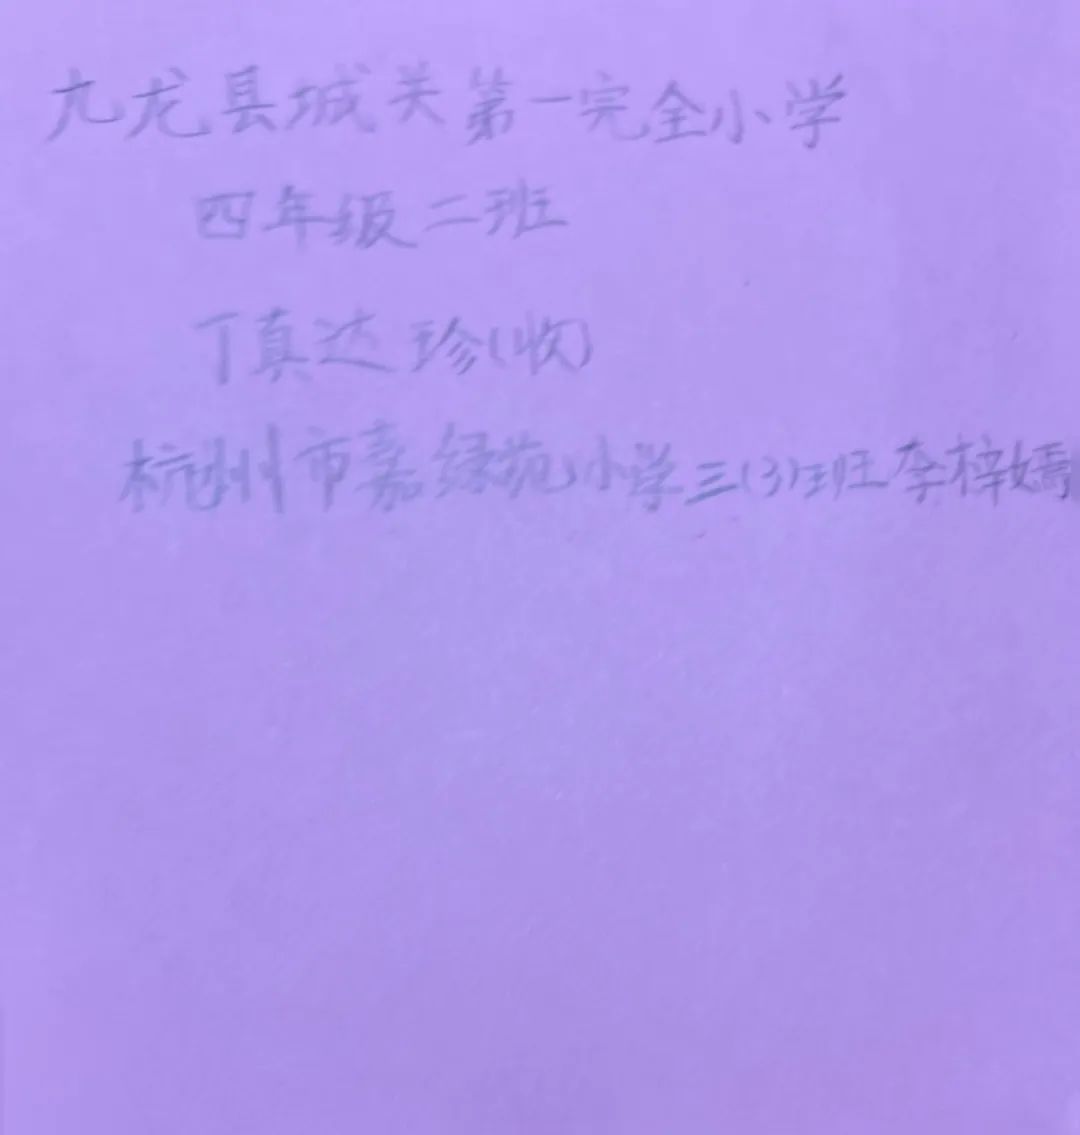 九龙县城关第一完全小学
四年级二班
丁真达珍(收)
杭州市嘉绿苑小学三(3)班李梓嫣